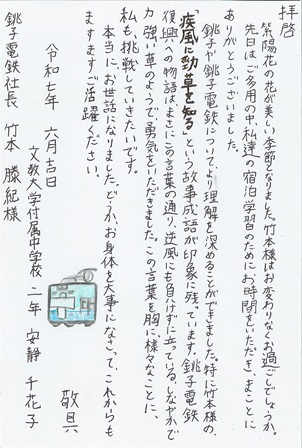 拝啓
紫陽花の花が美しい季節となりました。竹本様はお変わりなくお過ごしでしょうか。
先日はご多用の中、私達の宿泊学習のためにお時間をいただき、まことに
ありがとうございました。
銚子や銚子電鉄について、より理解を深めることができました。特に竹本様の、
「疾風に勁草を知る」という故事成語が印象に残っています。銚子電鉄
復興への物語は、まさにこの言葉の通り、逆風にも負けずに立っている、しなやかで
力強い草のようで勇気をいただきました。この言葉を胸に、様々なことに、
私も、挑戦していきたいです。
本当に、お世話になりました。どうか、お身体を大事になさって、これからも
ますますご活躍ください。
敬具
令和七年 六月吉日
文教大学付属中学校 二年 安静 千花子
銚子電鉄社長 竹本 勝紀様